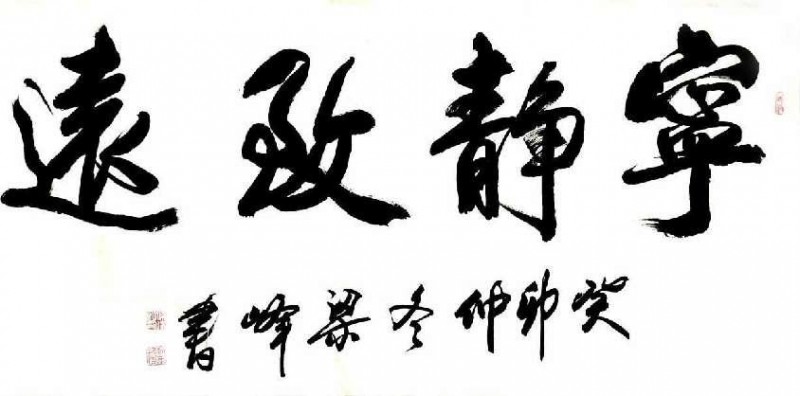 寧靜致遠
癸卯仲冬梁峰書